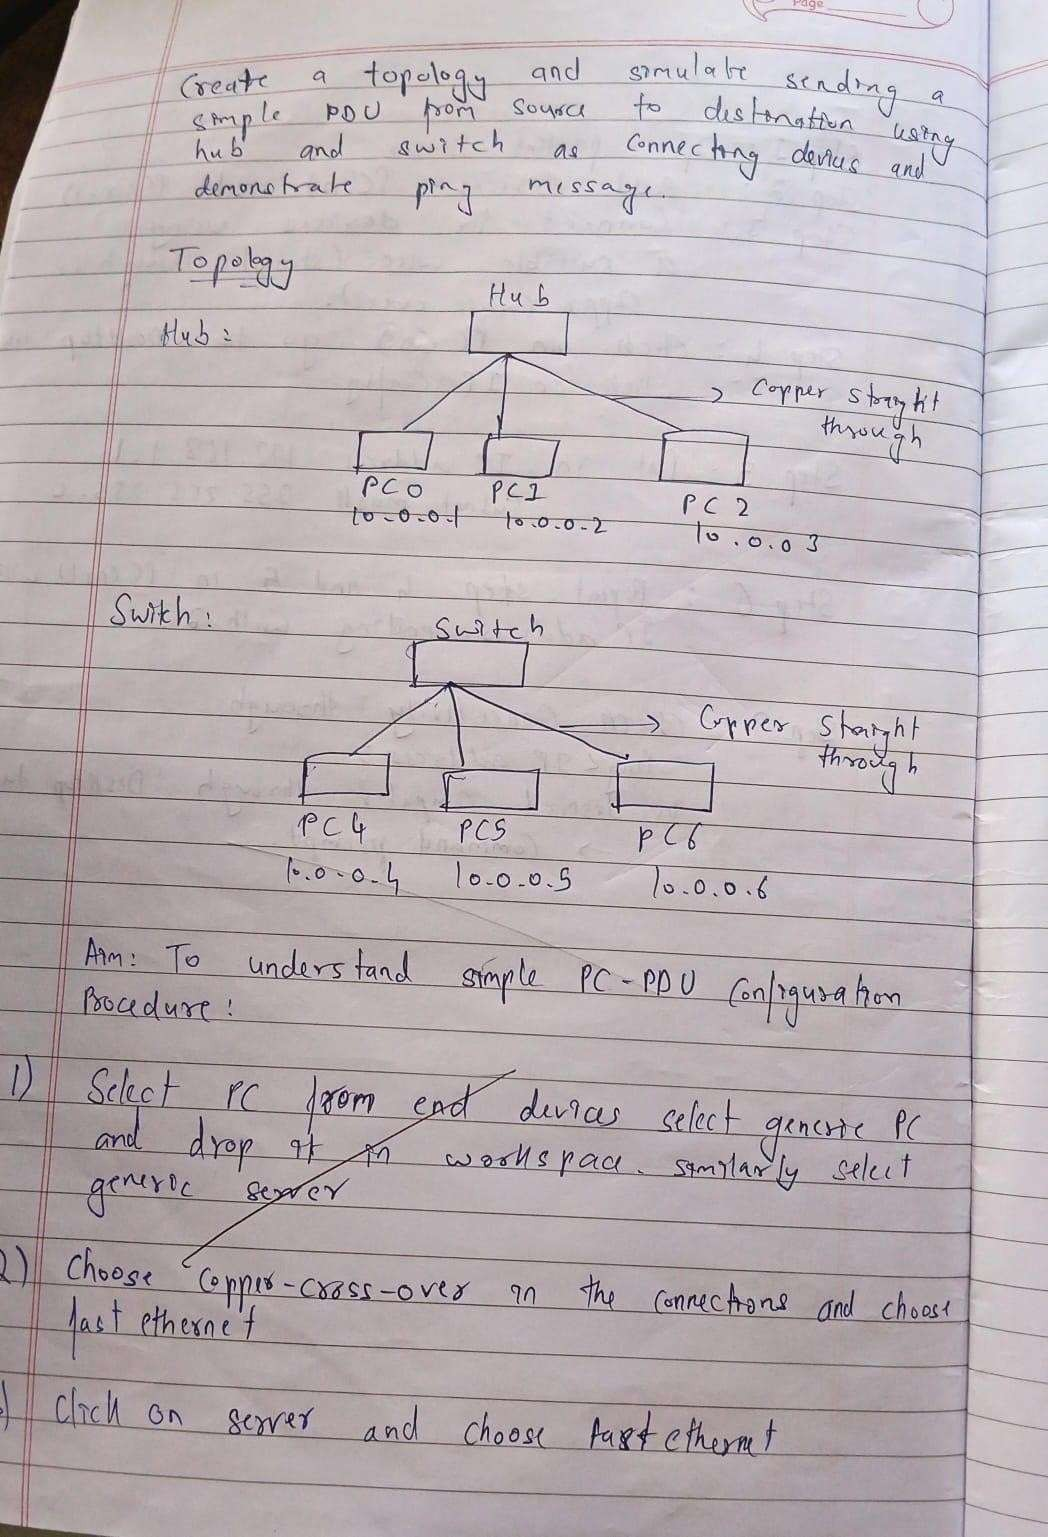 Page
Create a topology and simulate sending a
simple PDU from source to destination using
hub and switch as connecting devices and
demonstrate ping message.
Topology
Hub
Hub :
Copper straight
through
PC0 PC1 PC 2
10.0.0.1 10.0.0.2 10.0.0 3
Switch :
Switch
Copper straight
through
PC4 PC5 PC6
10.0.0.4 10.0.0.5 10.0.0.6
Aim: To understand simple PC-PDU configuration
Procedure :
1) Select PC from end devices select generic PC
and drop it in workspace. similarly select
generic server
2) Choose copper-cross-over in the connections and choose
fast ethernet
) Click on server and choose fast ethernet